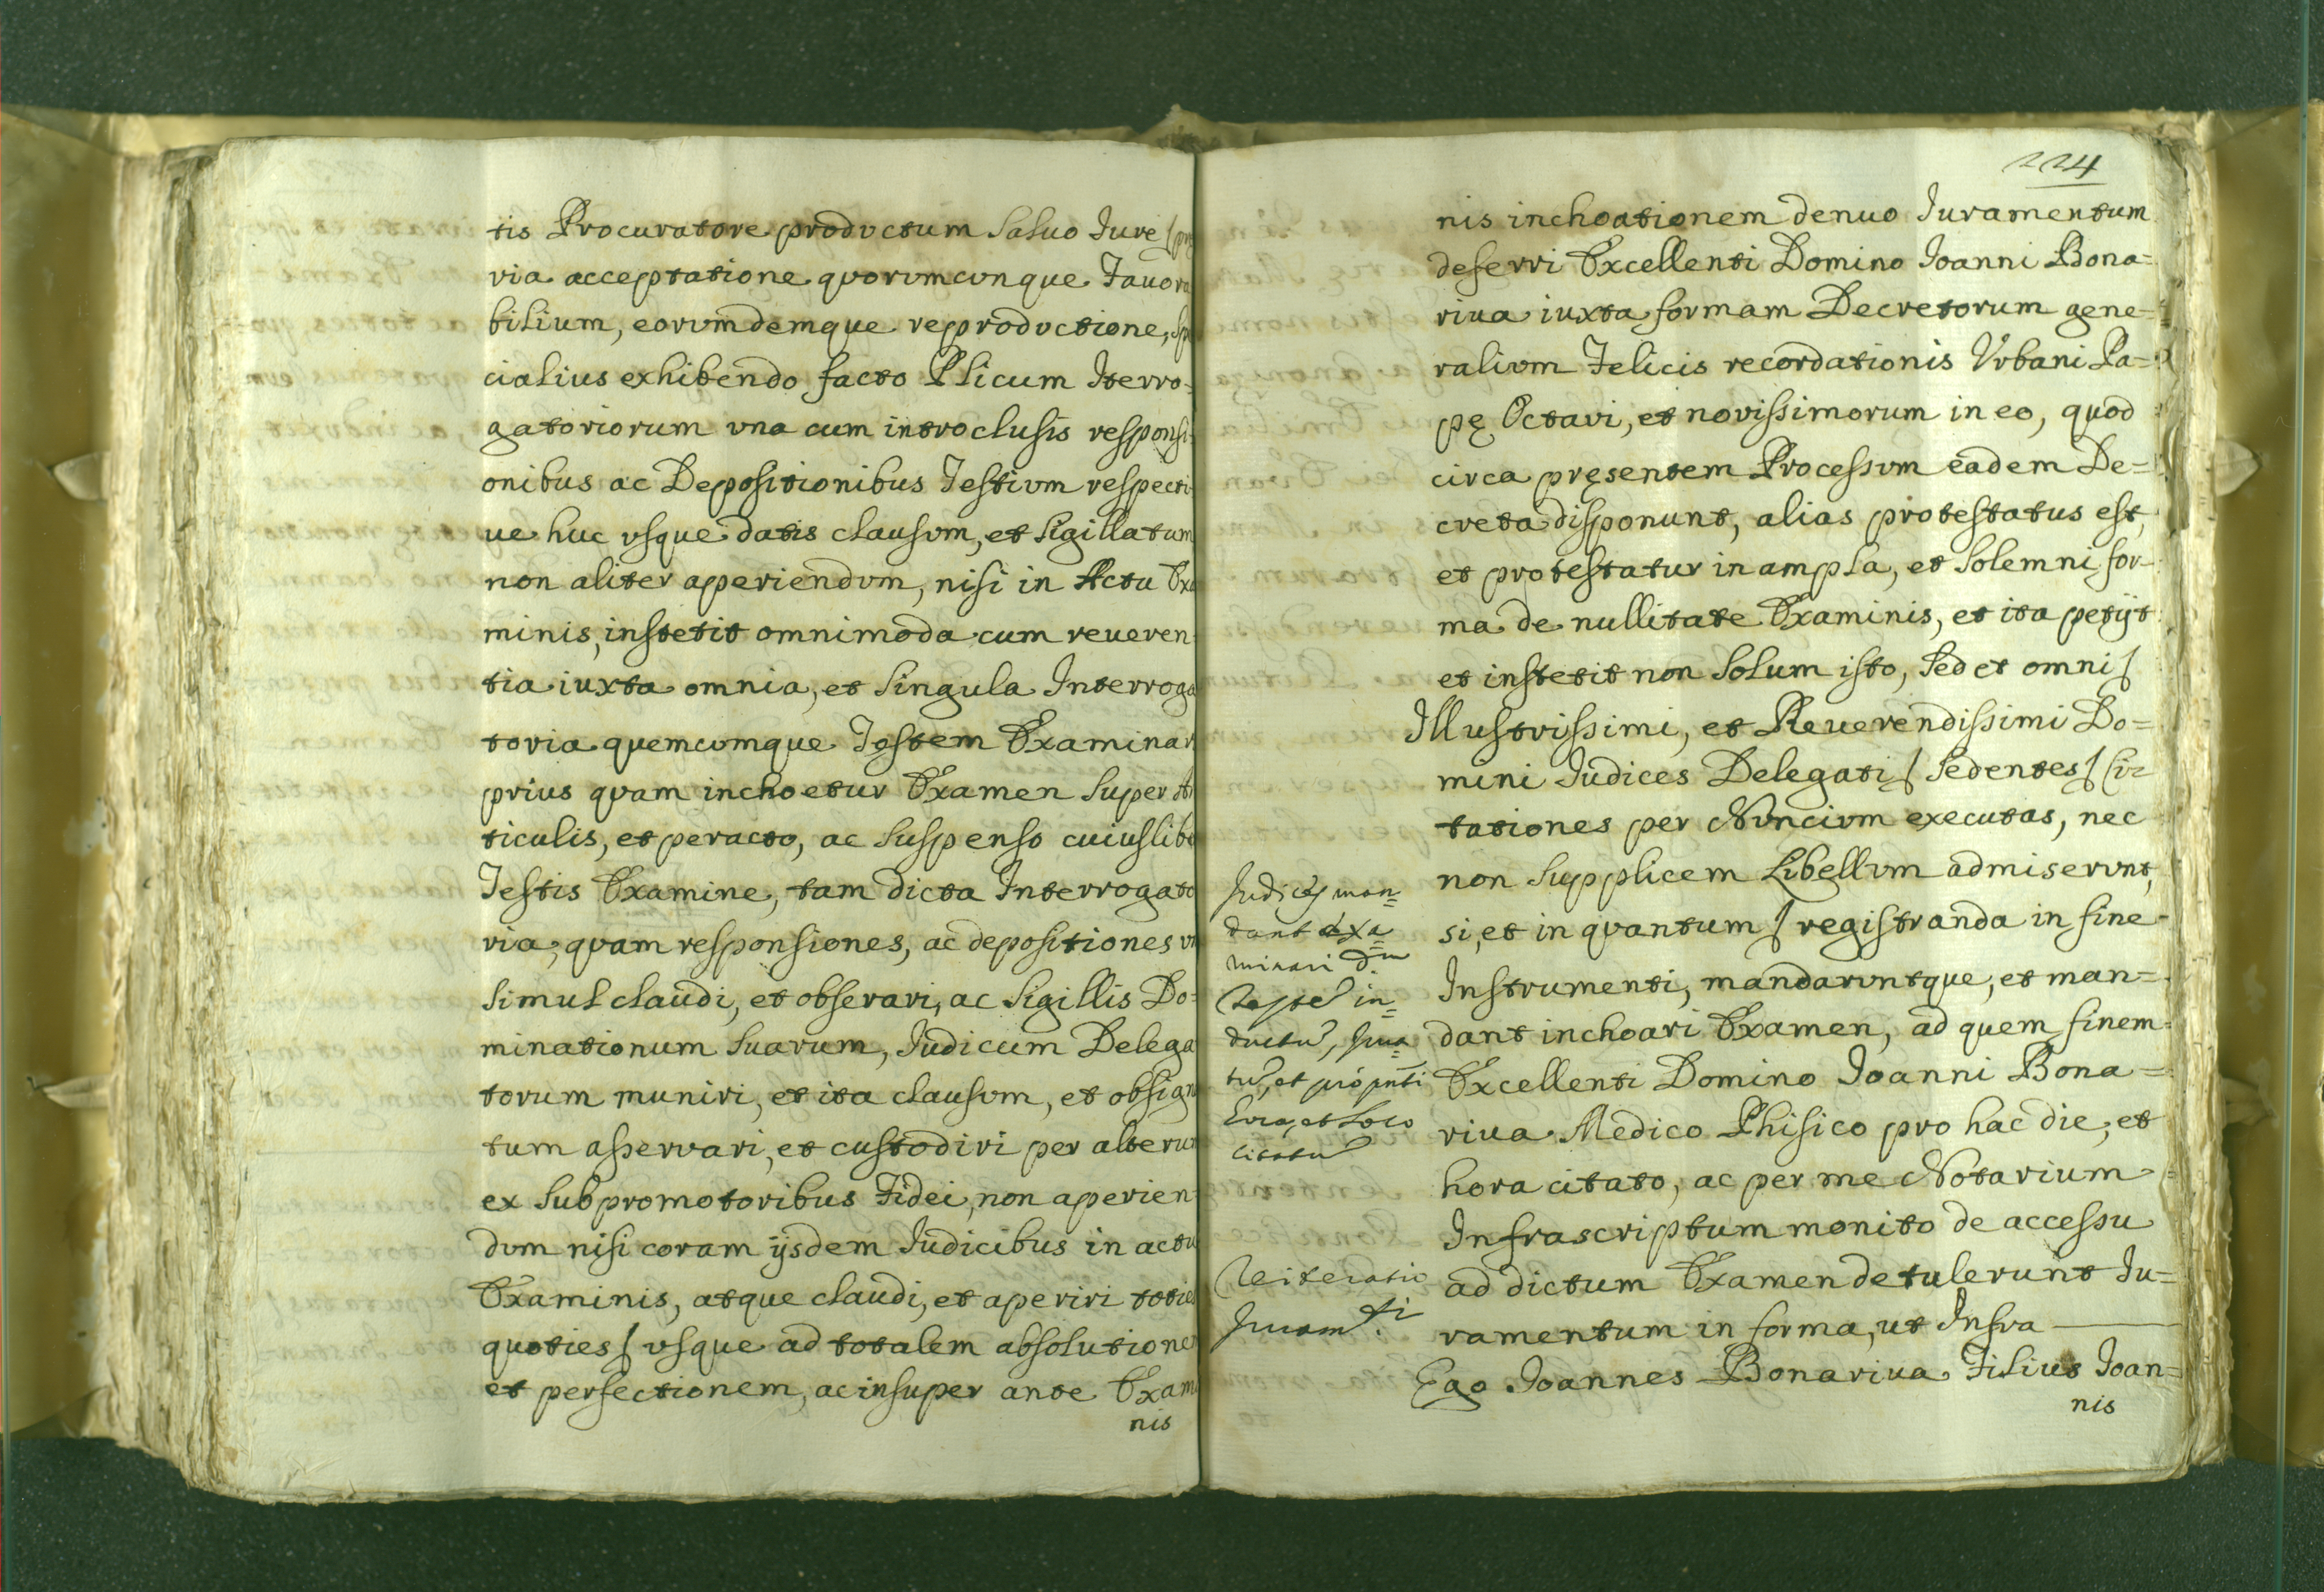 tis Procuratore productum Saluo Jure /prę
via acceptatione quorumcunque Fauora
bilium, eorumdemque reproductione, Spe
cialius exhibendo facto Plicum Iterro-
gatoriorum una cum introclusis responsi-
onibus ac Depositionibus Testium respecti-
ue huc usque datis clausum, et Sigillatum
non aliter aperiendum, nisi in Actu Exa
minis, institit omnimoda cum reueren
tia iuxta omnia, et Singula Interroga
toria quemcumque Testem Examinari
prius quam inchoetur Examen Super Ar
ticulis, et peracto, ac Suspenso cuiuslibe
Testis Examine, tam dicta Interrogato
ria, quam responsiones, ac depositiones
Simul claudi, et obserari, ac Sigillis Do-
minationum Suarum, Judicum Delega
torum muniri, et ita clausum, et obsigna
tum asservari, et custodiri per alterum
ex Subpromotoribus Fidei, non aperien
dum nisi coram ijsdem Judicibus in actu
Examinis, atque claudi, et aperiri toties
quoties / usque ad totalem absolutionem
et perfectionem, ac insuper ante Exami
nis
224
nis inchoationem denuo Juramentum
deferri Excellenti Domino Joanni Bona=
riua iuxta formam Decretorum gene=
ralium Felicis recordationis Urbani Pa=
pę Octavi, et novissimorum in eo, quod
circa pręsentem Processum eadem De=
creta disponunt, alias protestatus est,
et protestatur in ampla, et Solemni for-
ma de nullitate Examinis, et ita petijt
et institit non Solum isto, Sed et omni /
Illustrissimi, et Reuerendissimi Do=
mini Judices Delegati / Sedentes / Ci=
tationes per Nuncium executas, nec
non Supplicem Libellum admiserunt,
si, et in quantum / registranda in fine
Instrumenti, mandaruntque, et man=
dant inchoari Examen, ad quem finem
Excellenti Domino Joanni Bona=
riua Medico Phisico pro hac die, et
hora citato, ac per me Notarium
Infrascriptum monito de accessu
ad dictum Examen detulerunt Ju=
ramentum in forma, ut Infra
Ego Joannes Bonariua Filius Joan=
nis
Judices man=
dant exa=
minari d.m
Testem in=
ductum, Jura=
tum, et pro pnti
hora, et loco
citatum
Reiteratio
Juram.ti